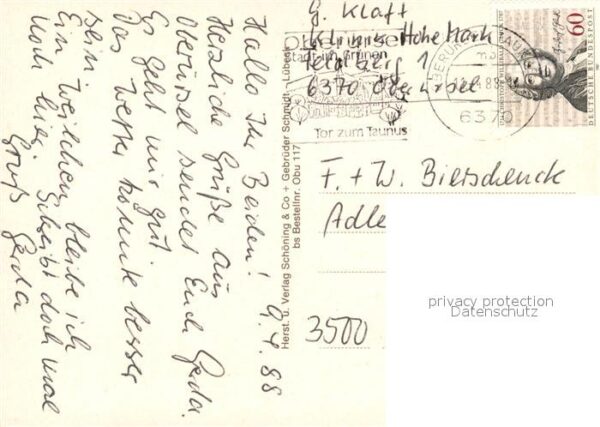 Hallo Ihr Beiden! 9.4.88
Herzliche Grüße aus
Oberursel sendet Euch Gerda.
Es geht mir gut
Das Wetter könnte besser
sein.
Ein Weilchen bleibe ich
noch hier. Schreibt doch mal
Gruß Gerda
Herst. u. Verlag Schöning & Co + Gebrüder Schmidt - Lübeck
bs Bestellnr. Obu 117
G. Klaft
Klinik Hohe Mark
6370 Oberursel
Stadt im Grünen
Tor zum Taunus
OBERURSEL TAUNUS
6370
60
DEUTSCHE BUNDESPOST
F. + W. Bierschenck
Adle
3500
privacy protection
Datenschutz